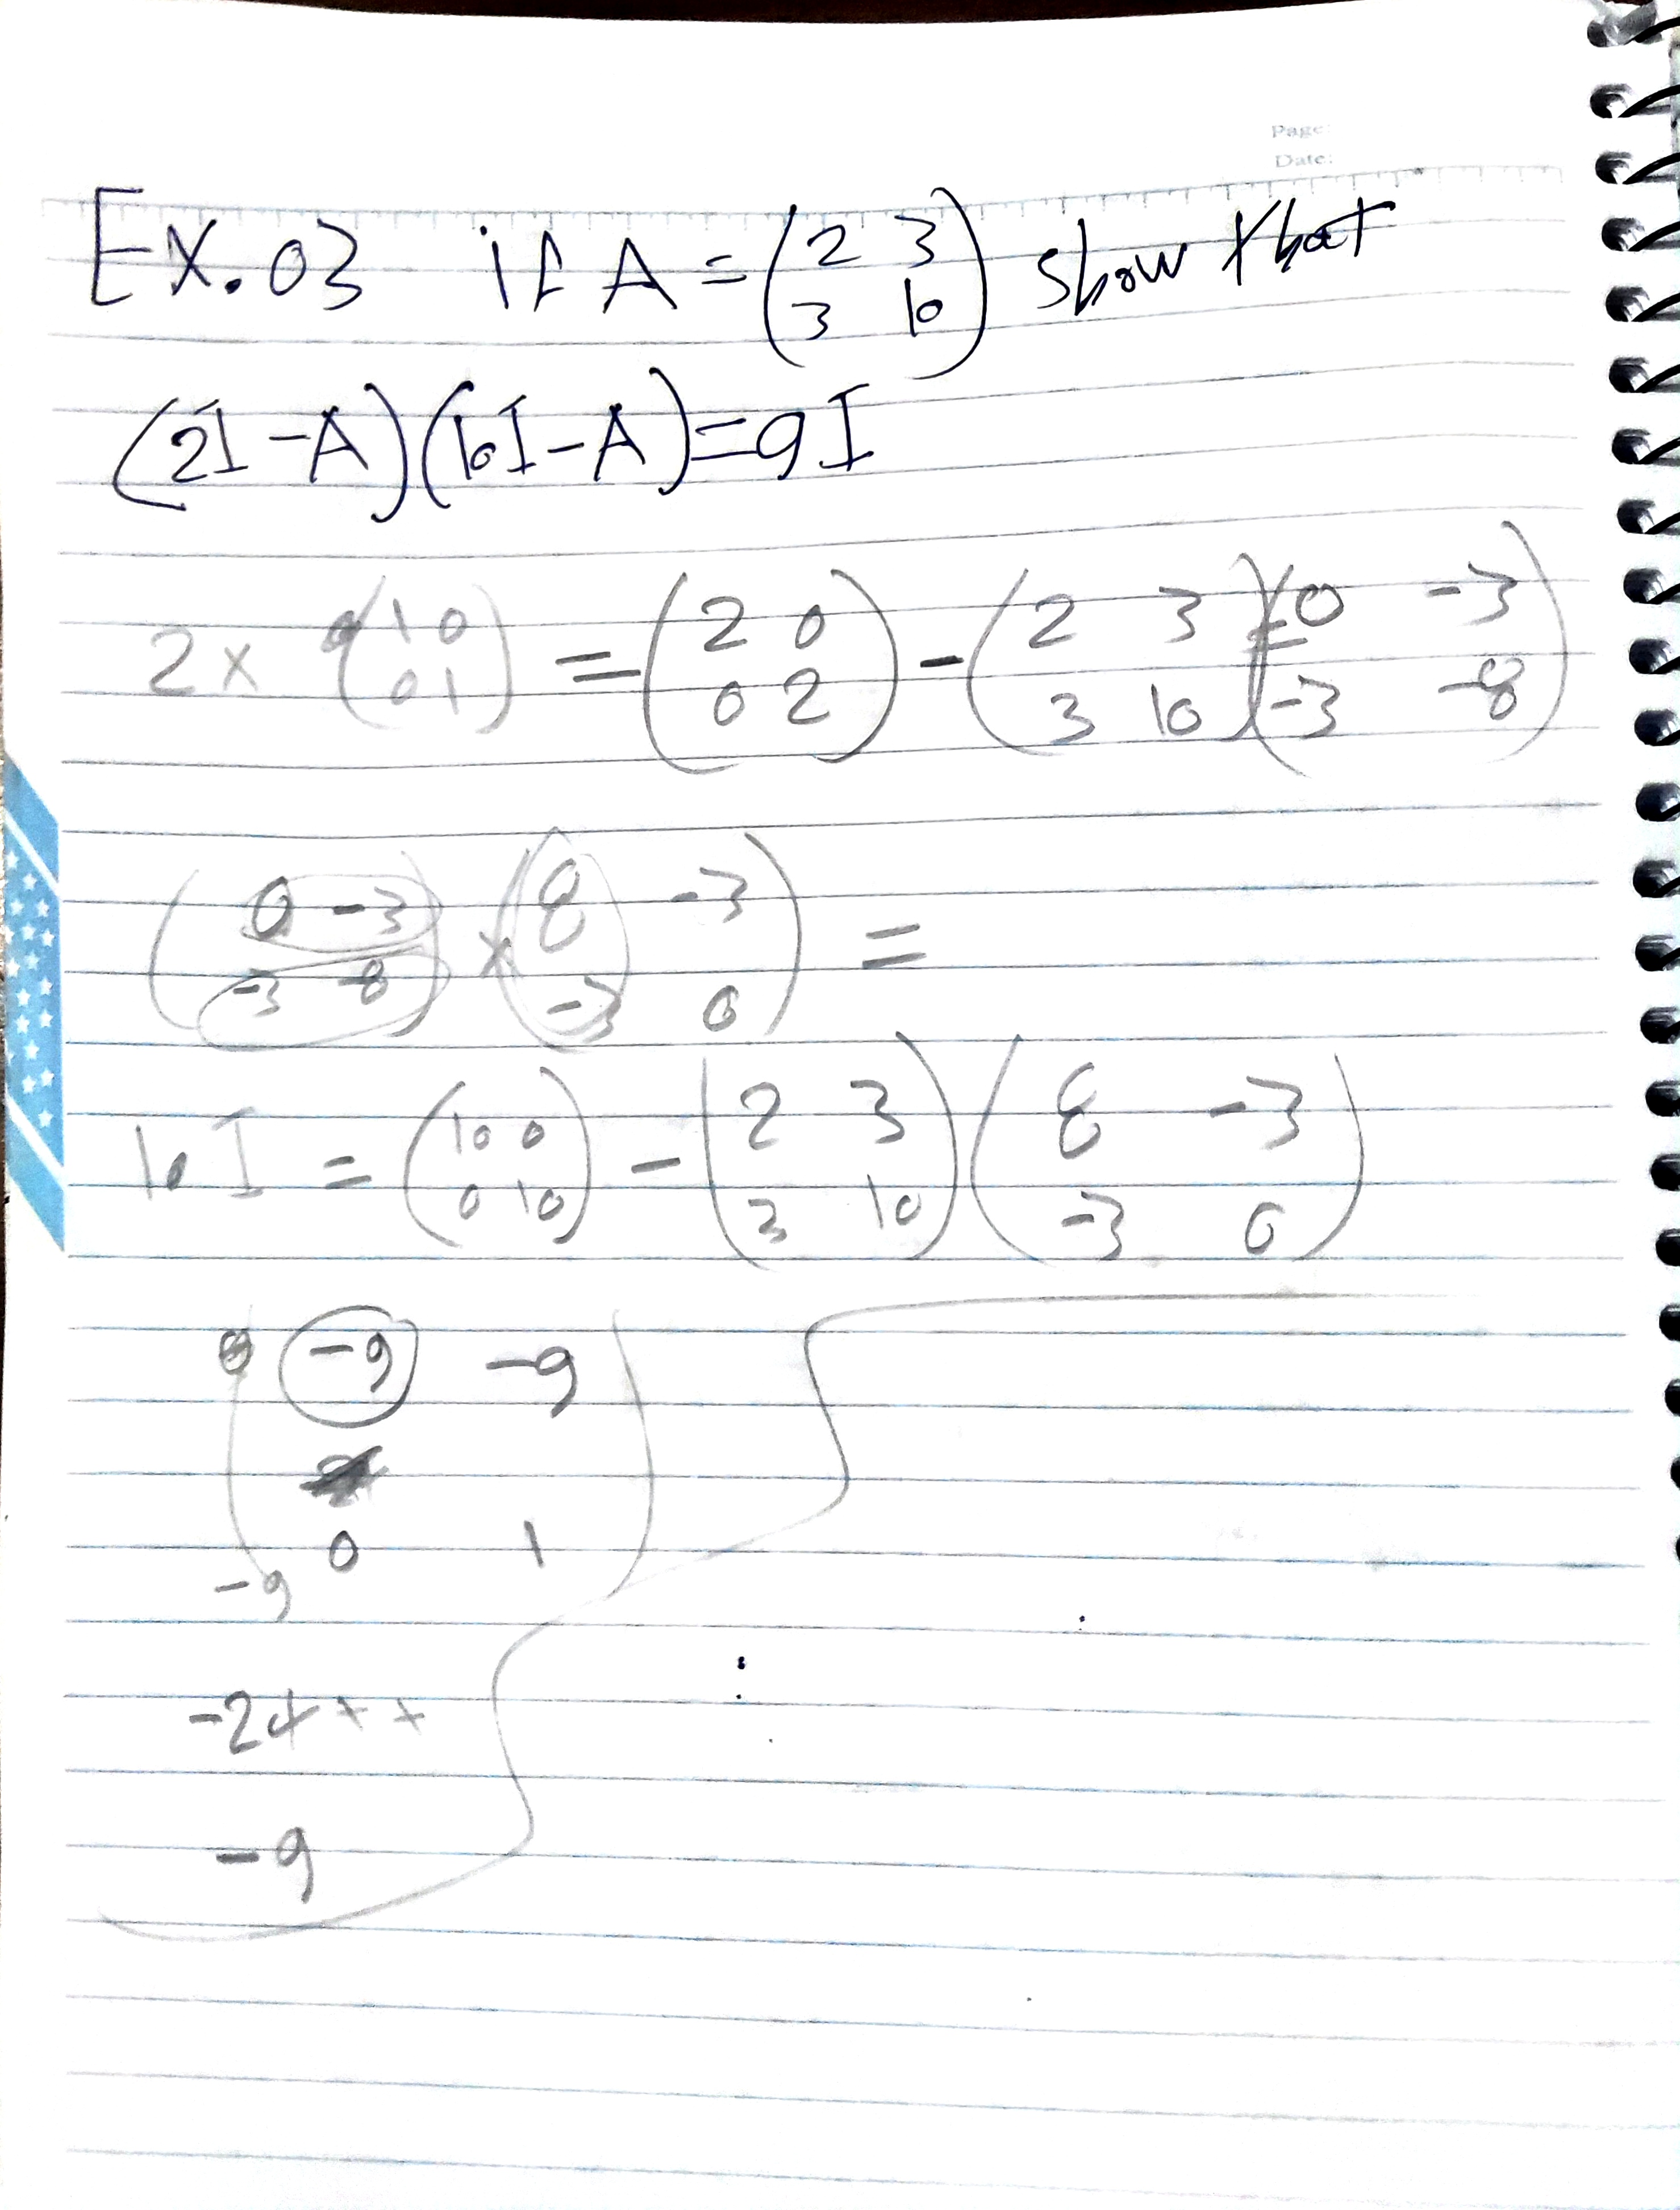 Page:
Date:
EX.03 if A = (2 3 3 10) show that
(2I - A)(10I - A) = 9I
2 × (1 0 0 1) = (2 0 0 2) - (2 3 3 10) = (0 -3 -3 -8)
(0 -3 -3 -8) × (8 -3 -3 0) =
10 I = (10 0 0 10) - (2 3 3 10) (8 -3 -3 0)
-9 -9
0 1
-9
-24 + +
-9